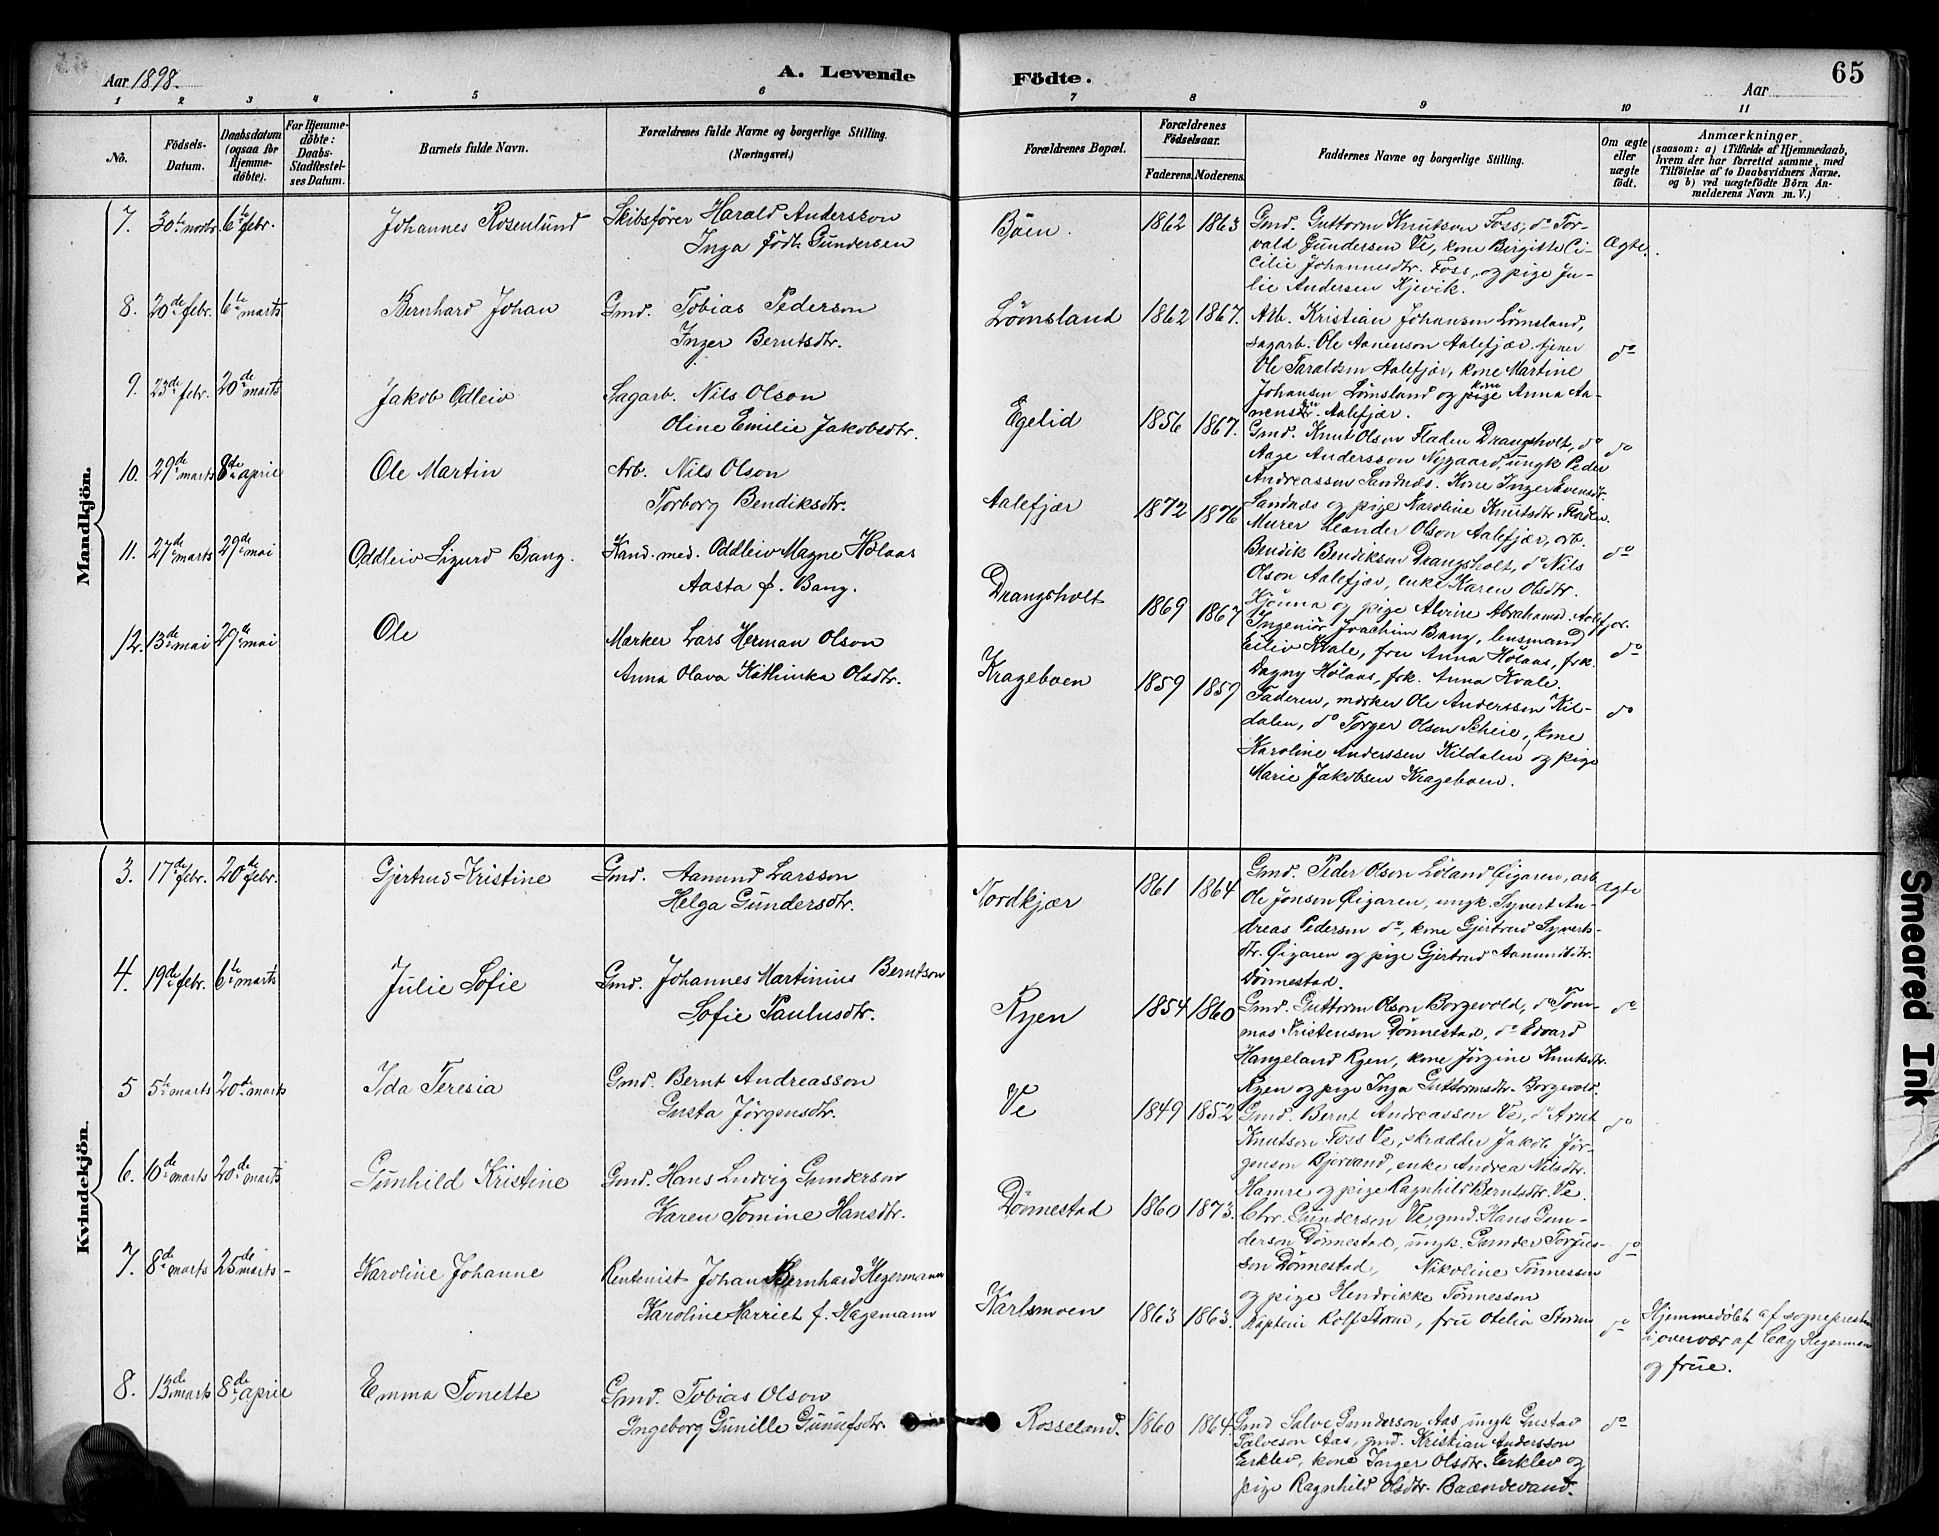 Aar 1898.
A. Levende
Födte.
Aar
65
1 2 3 4 5 6 7 8 9 10 11
No.
Födsels-
Datum.
Daabsdatum
(ogsaa for
Hjemme-
døbte).
For Hjemme-
døbte:
Daabs-
Stadfæstel-
ses Datum.
Barnets fulde Navn.
Forældrenes fulde Navne og borgerlige Stilling.
(Næringsvei.)
Forældrenes Bopæl.
Forældrenes
Födselsaar.
Faderens. Moderens.
Faddernes Navne og borgerlige Stilling.
Om ægte
eller
uægte
födt.
Anmærkninger.
(saasom: a) i Tilfælde af Hjemmedaab,
hvem der har forrettet samme, med
Tilföielse af to Daabsvidners Navne.
og b) ved uægtefödte Börn An-
melderens Navn m. V.)
Mandkjön.
7. 30te novbr. 6te febr. Johannes Rosenlund Skibsfører Harald Andersson
Inga født Gundersen
Bøen. 1862 1863 Ægte.
Gmd. Guttorm Knutson Foss, do Tor-
vald Gundersen Ve, kone Birgitte Ci-
cilie Johannesdtr. Foss, og pige Ju-
lie Andersen Kjevik.
8. 20de febr. 6te marts Bernhard Johan Gmd. Tobias Pederson
Inger Berntsdtr.
Lømsland 1862 1867. do
Arb. Kristian Johansen Lømsland,
sagarb. Ole Aanenson Aalefjær, tjener
Ole Taraldsen Aalefjær, kone Martine
Johansen Lømsland og kone Anna Aa-
nensdtr. Aalefjær.
9. 23de febr. 20de marts Jakob Odleiv Sagarb. Nils Olson
Oline Emilie Jakobsdtr.
Egelid 1856 1867. do
Gmd. Knut Olson Fladen Drangsholt, do
Aage Andersson Nygaard, ungk. Peder
Andreassen Sandnes. Kone Inger Evensdtr.
Sandnes og pige Karoline Knutsdtr. Fladen.
10. 29de marts 8de april Ole Martin Arb. Nils Olson
Torborg Bendiksdtr.
Aalefjær 1872 1876 do
Murer Leander Olson Aalefjær, arb.
Bendik Bendiksen Drangsholt, do Nils
Olson Aalefjær, enke Karen Olsdtr.
og pige Alvine Abrahamsd. Aalefjær.
11. 27de marts 29de mai Oddleiv Sigurd Bang. Kand. med. Oddleiv Magne Hølaas
Aasta f. Bang.
Drangsholt 1869 1867 do
Ingeniør Joachim Bang, lensmand
Eiliv Kvale, fru Anna Hølaas, frk.
Dagny Hølaas, frk. Anna Kvale.
12. 13de mai 29de mai Ole Mærker Lars Herman Olson
Anna Olava Kathinka Olsdtr.
Krageboen 1859 1859 do
Faderen, mærker Ole Andersson Kil-
dalen, do Torger Olson Scheie, kone
Karoline Anderssen Kildalen og pige
Marie Jakobsen Krageboen.
Kvindekjön.
3. 17de febr. 20de febr. Gjertrud Kristine Gmd. Aamund Larsson
Helga Gundersdtr.
Nordkjær 1861 1864 ægte
Gmd. Peder Olson Løland Øigaren, arb.
Ole Jonson Øigaren, ungk. Syvert An-
dreas Pedersen do, kone Gjertrud Syverts-
dtr. Øigaren og pige Gjertrud Aamundsdtr.
Dønnestad.
4. 19de febr. 6te marts Julie Sofie Gmd. Johannes Martinius Berntson
Sofie Paulusdtr.
Ryen 1854 1860 do
Gmd. Guttorm Olson Borgevold, do Tom-
mas Kristenson Dønnestad, do Edvard
Hangeland Ryen, kone Jørgine Knutsdtr.
Ryen og pige Inga Guttormsdtr. Borgevold.
5 5te marts 20de marts Ida Teresia Gmd. Bernt Andreasson
Gusta Jørgensdtr.
Ve 1849 1852 do
Gmd. Bernt Andreasson Ve, do Arnt
Knutson Foss Ve, skrædder Jakob Jør-
genson Bjorvand, enke Andrea Nilsdtr.
Hamre og pige Ragnhild Berntsdtr. Ve.
6. 10de marts 20de marts Gunhild Kristine Gmd. Hans Ludvig Gunderson
Karen Tomine Hansdtr.
Dønnestad 1860 1873. do
Chr. Gunderson Ve, gmd. Hans Gun-
derson Dønnestad, ungk. Gunder Torjus-
son Dønnestad, Nikoline Tønnessen
og pige Hendrikke Tønnesson
7. 8de marts 25de marts Karoline Johanne Rentenist Johan Bernhard Hegermann
Karoline Harriet f. Hagemann
Karlsmoen 1863 1863. do
Kaptein Rolf Strøm, fru Otelia Strøm
Hjemmedøbt af sognepresten
i overvær af Cay Hegermann
og frue.
8. 13de marts 8de april Emma Tonette Gmd. Tobias Olson
Ingeborg Gunille Gunufsdtr.
Rosseland. 1860 1864. do
Gmd Salve Gunderson Aas, ungk Gustav
Salveson Aas, gmd. Kristian Andersson
Erklev, kone Inger Olsdtr. Erklev og
pige Ragnhild Olsdtr. Baandevand.
Smeared Ink